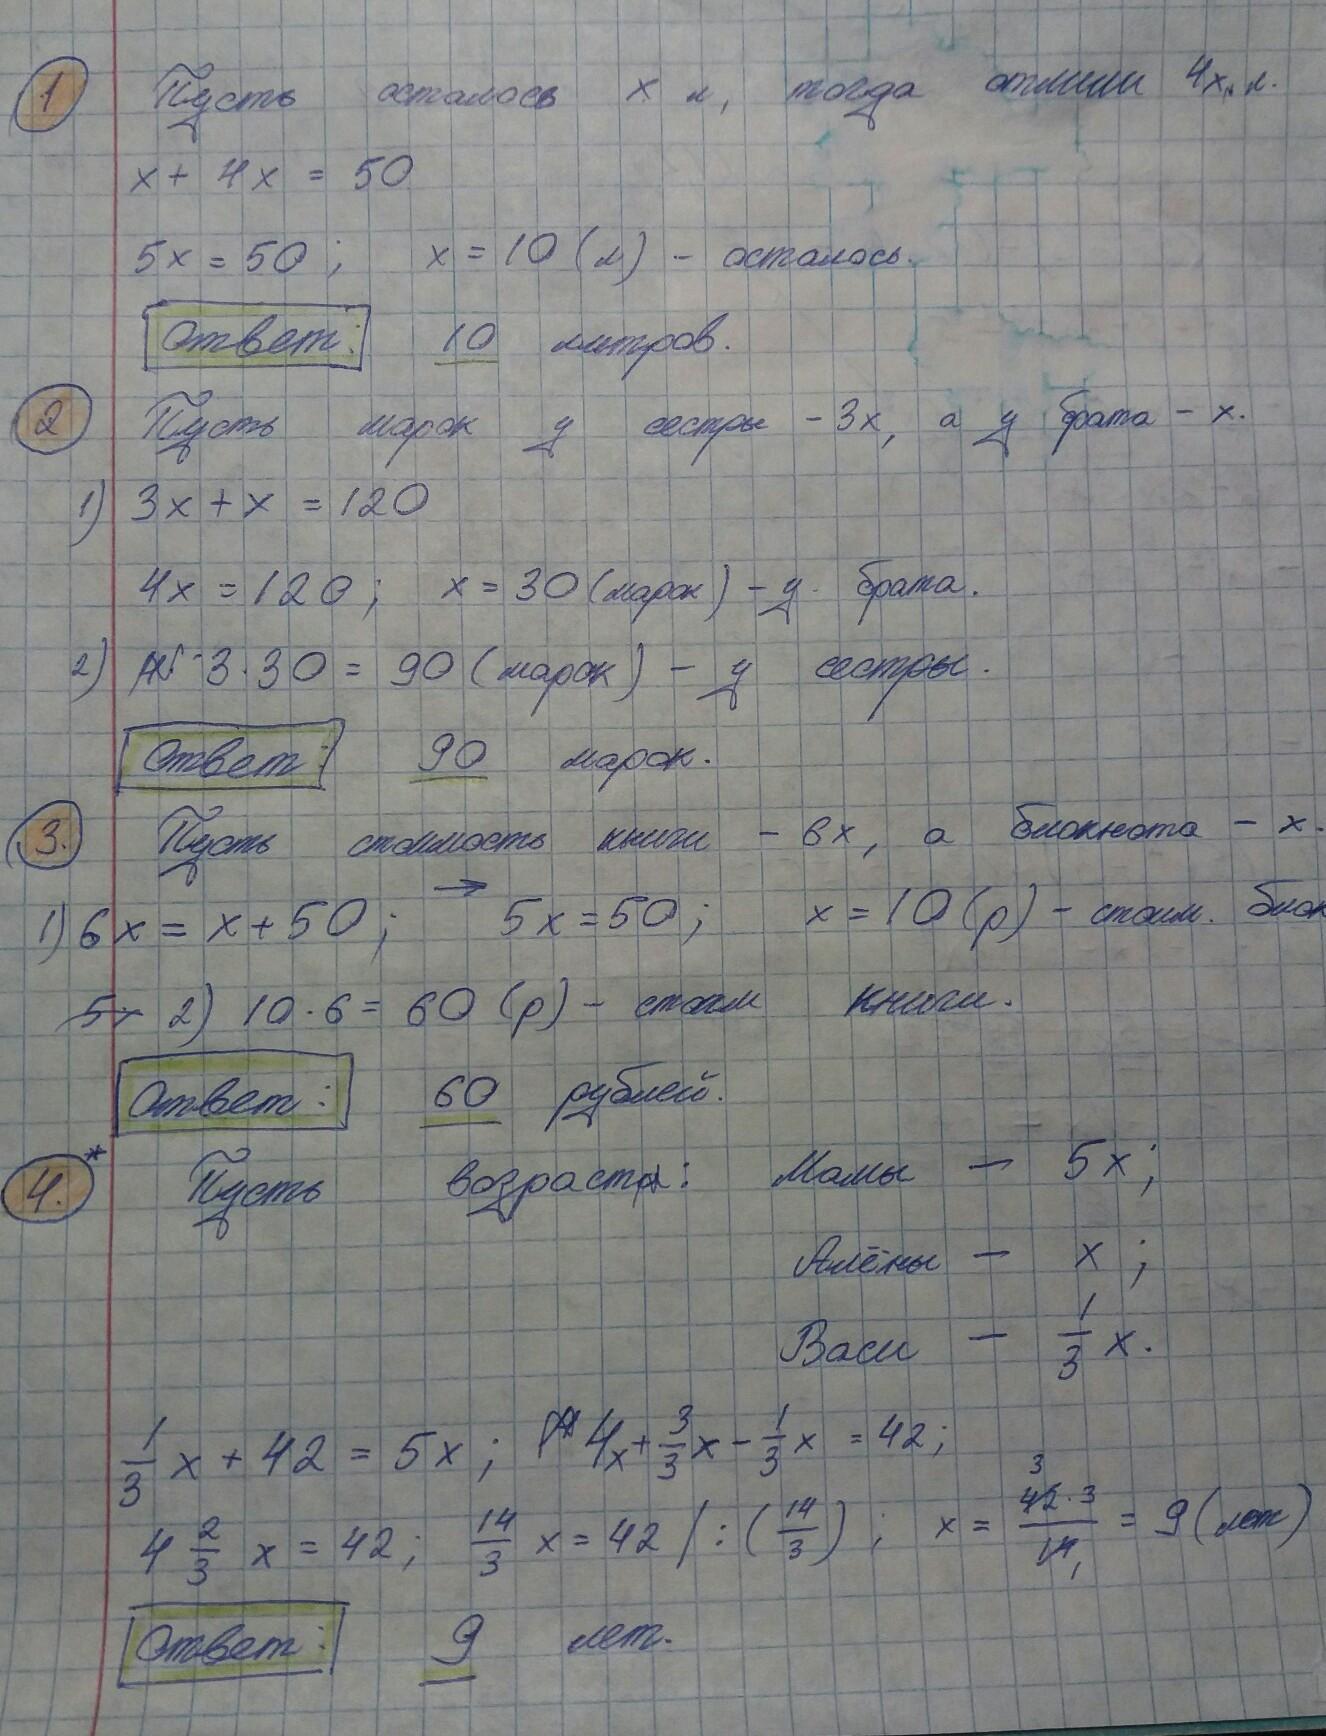 1 Пусть осталось x л, тогда отлили 4x л.
x + 4x = 50
5x = 50; x = 10 (л) - осталось.
Ответ: 10 литров.
2 Пусть марок у сестры - 3x, а у брата - x.
1) 3x + x = 120
4x = 120; x = 30 (марок) - у брата.
2) 3·30 = 90 (марок) - у сестры.
Ответ: 90 марок.
3. Пусть стоимость книги - 6x, а блокнота - x.
1) 6x = x + 50; → 5x = 50; x = 10 (р) - стоим. блок
2) 10·6 = 60 (р) - стоим книги.
Ответ: 60 рублей.
4.* Пусть возраста: Мамы — 5x;
Алёны — x;
Васи — 1/3 x.
1/3 x + 42 = 5x; 4x + 3/3 x - 1/3 x = 42;
4 2/3 x = 42; 14/3 x = 42 / : (14/3); x = 42·3/14 = 9 (лет)
Ответ: 9 лет.